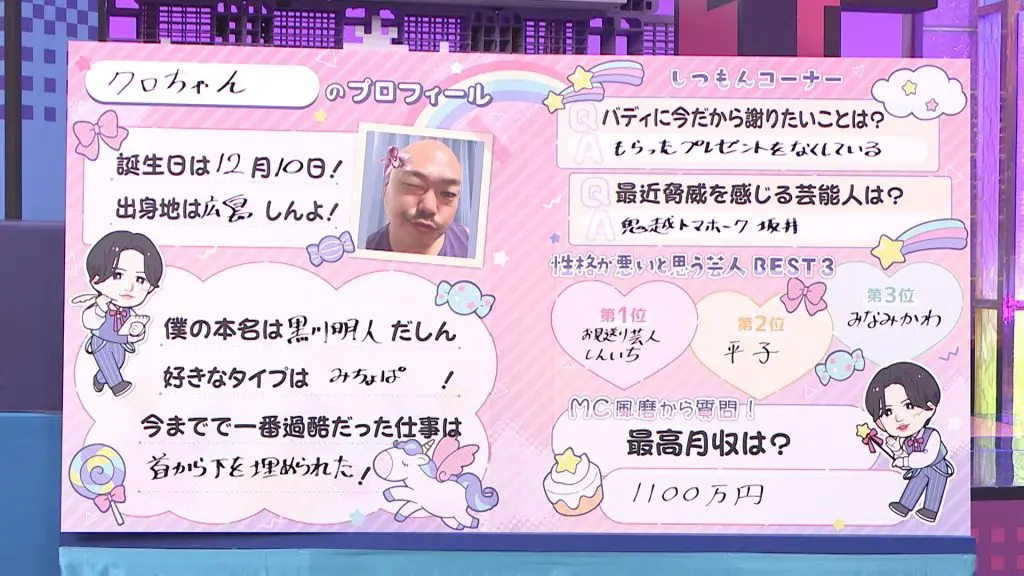 クロちゃん のプロフィール
誕生日は12月10日!
出身地は広島しんよ!
僕の本名は黒川明人だしん
好きなタイプは みちょぱ !
今までで一番過酷だった仕事は
首から下を埋められた!
しつもんコーナー
Q バディに今だから謝りたいことは?
A もらったプレゼントをなくしている
Q 最近脅威を感じる芸能人は?
A 鬼越トマホーク 坂井
性格が悪いと思う芸人 BEST3
第1位
お見送り芸人
しんいち
第2位
平子
第3位
みなみかわ
MC風磨から質問!
最高月収は?
1100万円